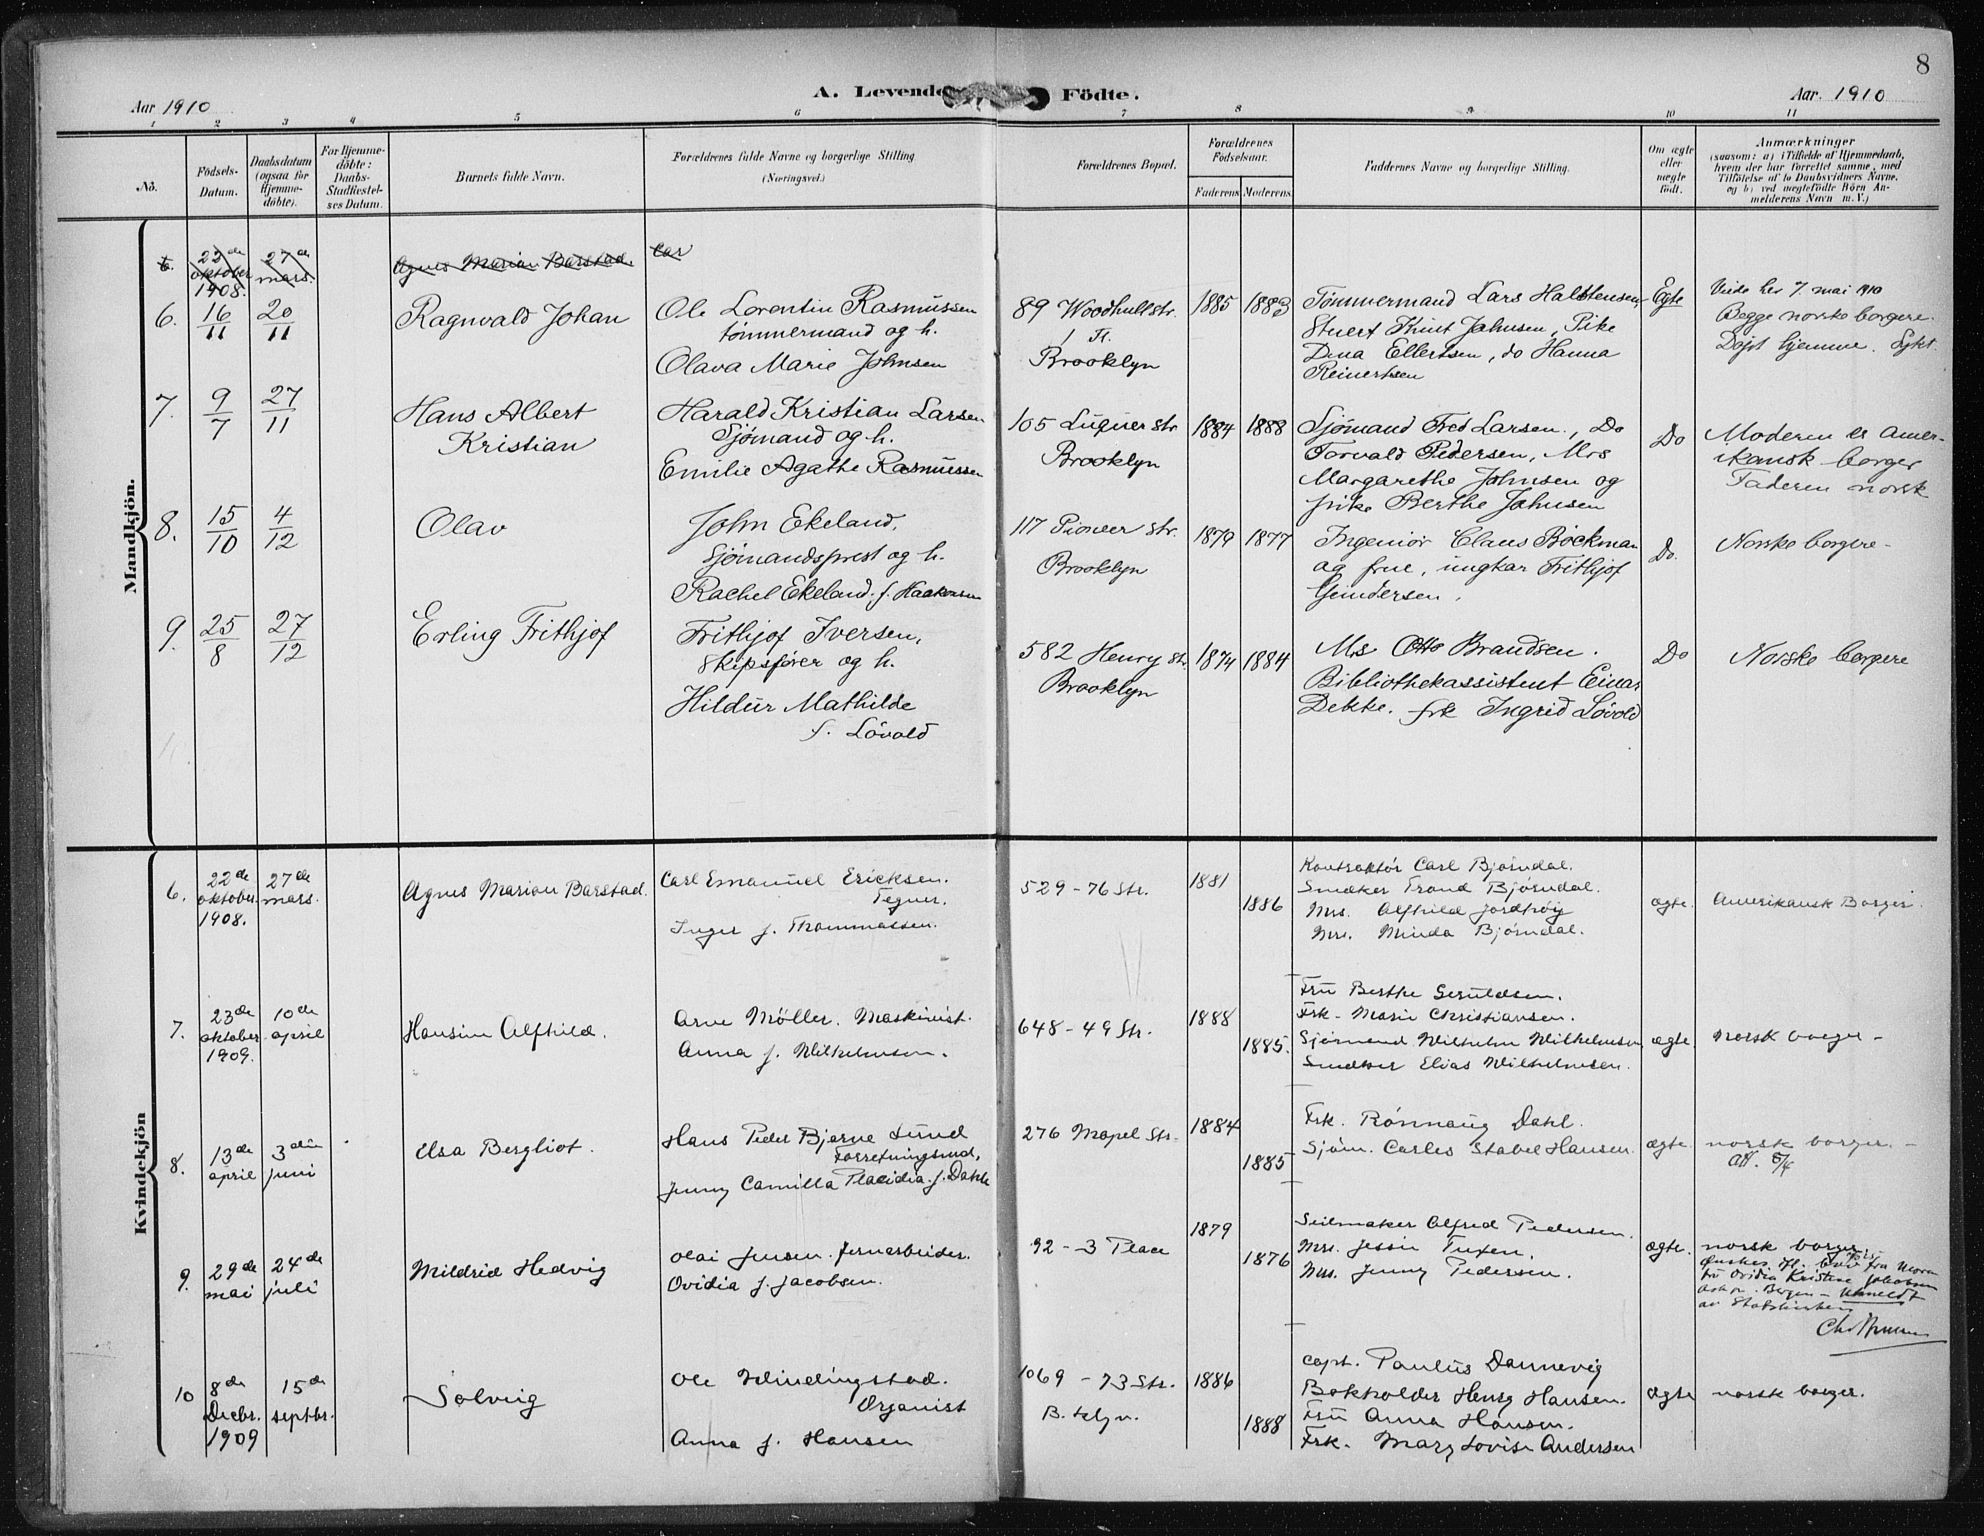 8
Aar 1910
A. Levende Födte.
Aar. 1910
1 2 3 4 5 6 7 8 9 10 11
No.
Födsels-
Datum.
Daabsdatum
(ogsaa for
Hjemme-
döbte).
For Hjemme-
döbte:
Daabs-
Stadfæstel-
ses Datum.
Barnets fulde Navn.
Forældrenes fulde Navne og borgerlige Stilling
(Næringsvei.)
Forældrenes Bopæl.
Forældrenes
Födselsaar.
Faderens Moderens
Faddernes Navne og borgerlige Stilling.
Om ægte
eller
uægte
födt.
Anmærkninger
(saasom: a) i Tilfælde af Hjemmedaab,
hvem der har forrettet samme, med
Tilföielse af to Daabsvidners Navne,
og b) ved uægtefödte Börn An-
melderens Navn m. V.)
Mandkjön.
6.
22de
oktober
1908.
27de
mars.
Agnes Marion Barstad.
Car
6.
16/11
20/11
Ragnvald Johan
Ole Lorentin Rasmussen
tømmermand og h.
Olava Marie Johnsen
89 Woodhull str.
1 Fl.
Brooklyn
1885
1883
Tømmermand Lars Halstensen
Stuert Knut Johnsen, Pike
Dina Ellertsen, do Hanna
Reinertsen
Egte
Viede her 7. mai 1910
Begge norske borgere.
Døpt hjemme. Sykt.
7.
9/7
27/11
Hans Albert
Kristian
Harald Kristian Larsen
Sjømand og h.
Emilie Agathe Rasmussen
105 Luquer str
Brooklyn
1884
1888
Sjømand Fred Larsen., Do
Torvald Pedersen, Mrs
Margarethe Johnsen og
pike Berthe Johnsen
Do
Moderen er amer-
ikansk borger
Faderen norsk
8.
15/10
4/12
Olav
John Ekeland,
Sjømandsprest og h.
Rachel Ekeland f. Haakonsen
117 Pioneer str.
Brooklyn
1879
1877
Ingeniør Claus Bøckman
og frue, ungkar Frithjof
Gundersen.
Do.
Norske borgere-
9.
25/8
27/12
Erling Frithjof
Frithjof Iversen,
Skipsfører og h.
Hildur Mathilde
f. Løvold
582 Henry st.
Brooklyn
1874
1884
Mrs Otto Brandsen.
Bibliothekassistent Einar
Dekke. frk Ingrid Løvold
Do
Norske borgere
Kvindekjön
6.
22de
oktober.
1908.
27de
mars.
Agnes Marion Barstad.
Carl Emanuel Ericksen.
Tegner.
Inger f. Thommassen.
529 - 76 Str.
1881
1886
Kontraktør Carl Bjørndal.
Snedker Trond Bjørndal.
Mrs. Alfhild Jordhøy
Mrs. Minda Bjørndal.
ægte.
Amerikansk Borger.
7.
23de
oktober
1909.
10de
april
Hansine Alfhild.
Arne Møller. Maskinist.
Anna f. Wilhelmsen.
648 - 49 Str.
1888
1885.
Fru Berthe Seruldsen.
Frk. Marie Christiansen.
Sjømand Wilhelm Wilhelmsen
Snedker Elias Wilhelmsen.
ægte.
Norsk borger -
8.
13de
april
3die
juni
Elsa Bergliot.
Hans Peder Bjarne Lund
Forretningsmd,
Jenny Camilla Placidia f. Dahl
276 Mapel Str.
1884
1885
Frk. Rönnaug Dahl.
Sjøm. Carlos Stabel Hansen.
ægte.
norsk borger. -
9.
29de
mai
24de
juli
Mildrid Hedvig
Olai Jensen. Jernarbeider.
Ovidia f. Jacobsen.
92 - 3 Place
1879
1876
Seilmaker Alfred Pedersen.
Mrs. Jessie Tuxen.
Mrs. Jenny Pedersen.
ægte.
norsk borger.
fra Moren
fru Ovidia Kristine Jakobsen
Bergen - Utmeldt
av Statskirken
10
8de
Decbr.
1909
15de
septbr.
Solveig
Ole Windingstad.
Organist
Anna f. Hansen
1069 - 73 Str.
B. klyn.
1886
1888
Capt. Paulus Dannevig
Bokholder Henry Hansen.
Fru Anna Hansen.
Frk. Mary Lovise Andersen
ægte
norsk borger.